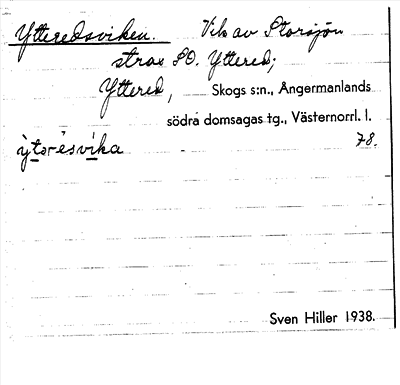 Ytteredsviken. Vik av Storsjön
strax SO. Yttered;
Yttered, Skogs s:n., Ångermanlands
södra domsagas tg., Västernorrl. l.
ỳtəresvika 78.
Sven Hiller 1938.